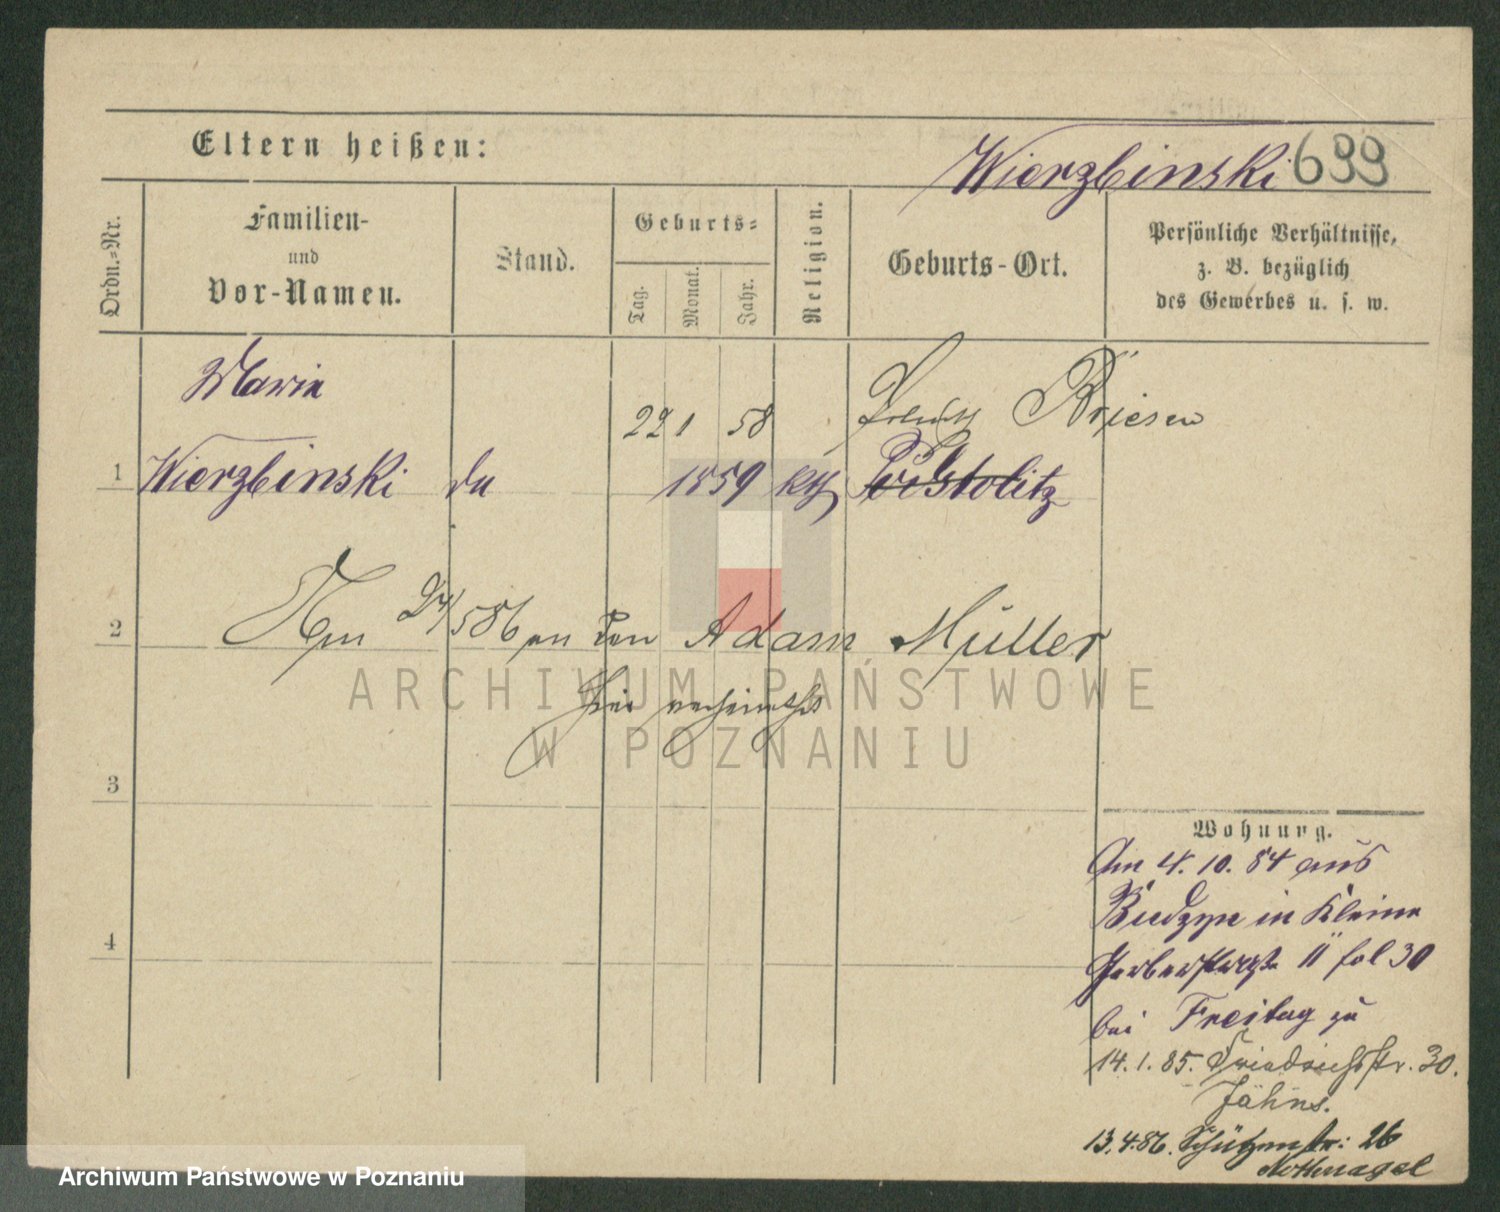 Eltern heißen:
Wierzbinski 699
Ordn.-Nr.
Familien-
und
Vor-Namen.
Stand.
Geburts-
Tag.
Monat.
Jahr.
Religion.
Geburts-Ort.
Persönliche Verhältnisse,
z. B. bezüglich
des Gewerbes u. s. w.
Marie
22 1 58 Briesen
1 Wierzbinski 1859 kth
2 Am 24/5 86 an den Adam Müller
hier verheirathet
3
Wohnung.
Am 4. 10. 84 aus
Budzyn in Kleine
4
Gerberstraße 11 fol 30
bei Freitag zu
14. 1. 85. Friedrichstr. 30.
Jähns.
13. 4. 86. Schützenstr: 26
Nothnagel
ARCHIWUM PAŃSTWOWE
W POZNANIU
Archiwum Państwowe w Poznaniu